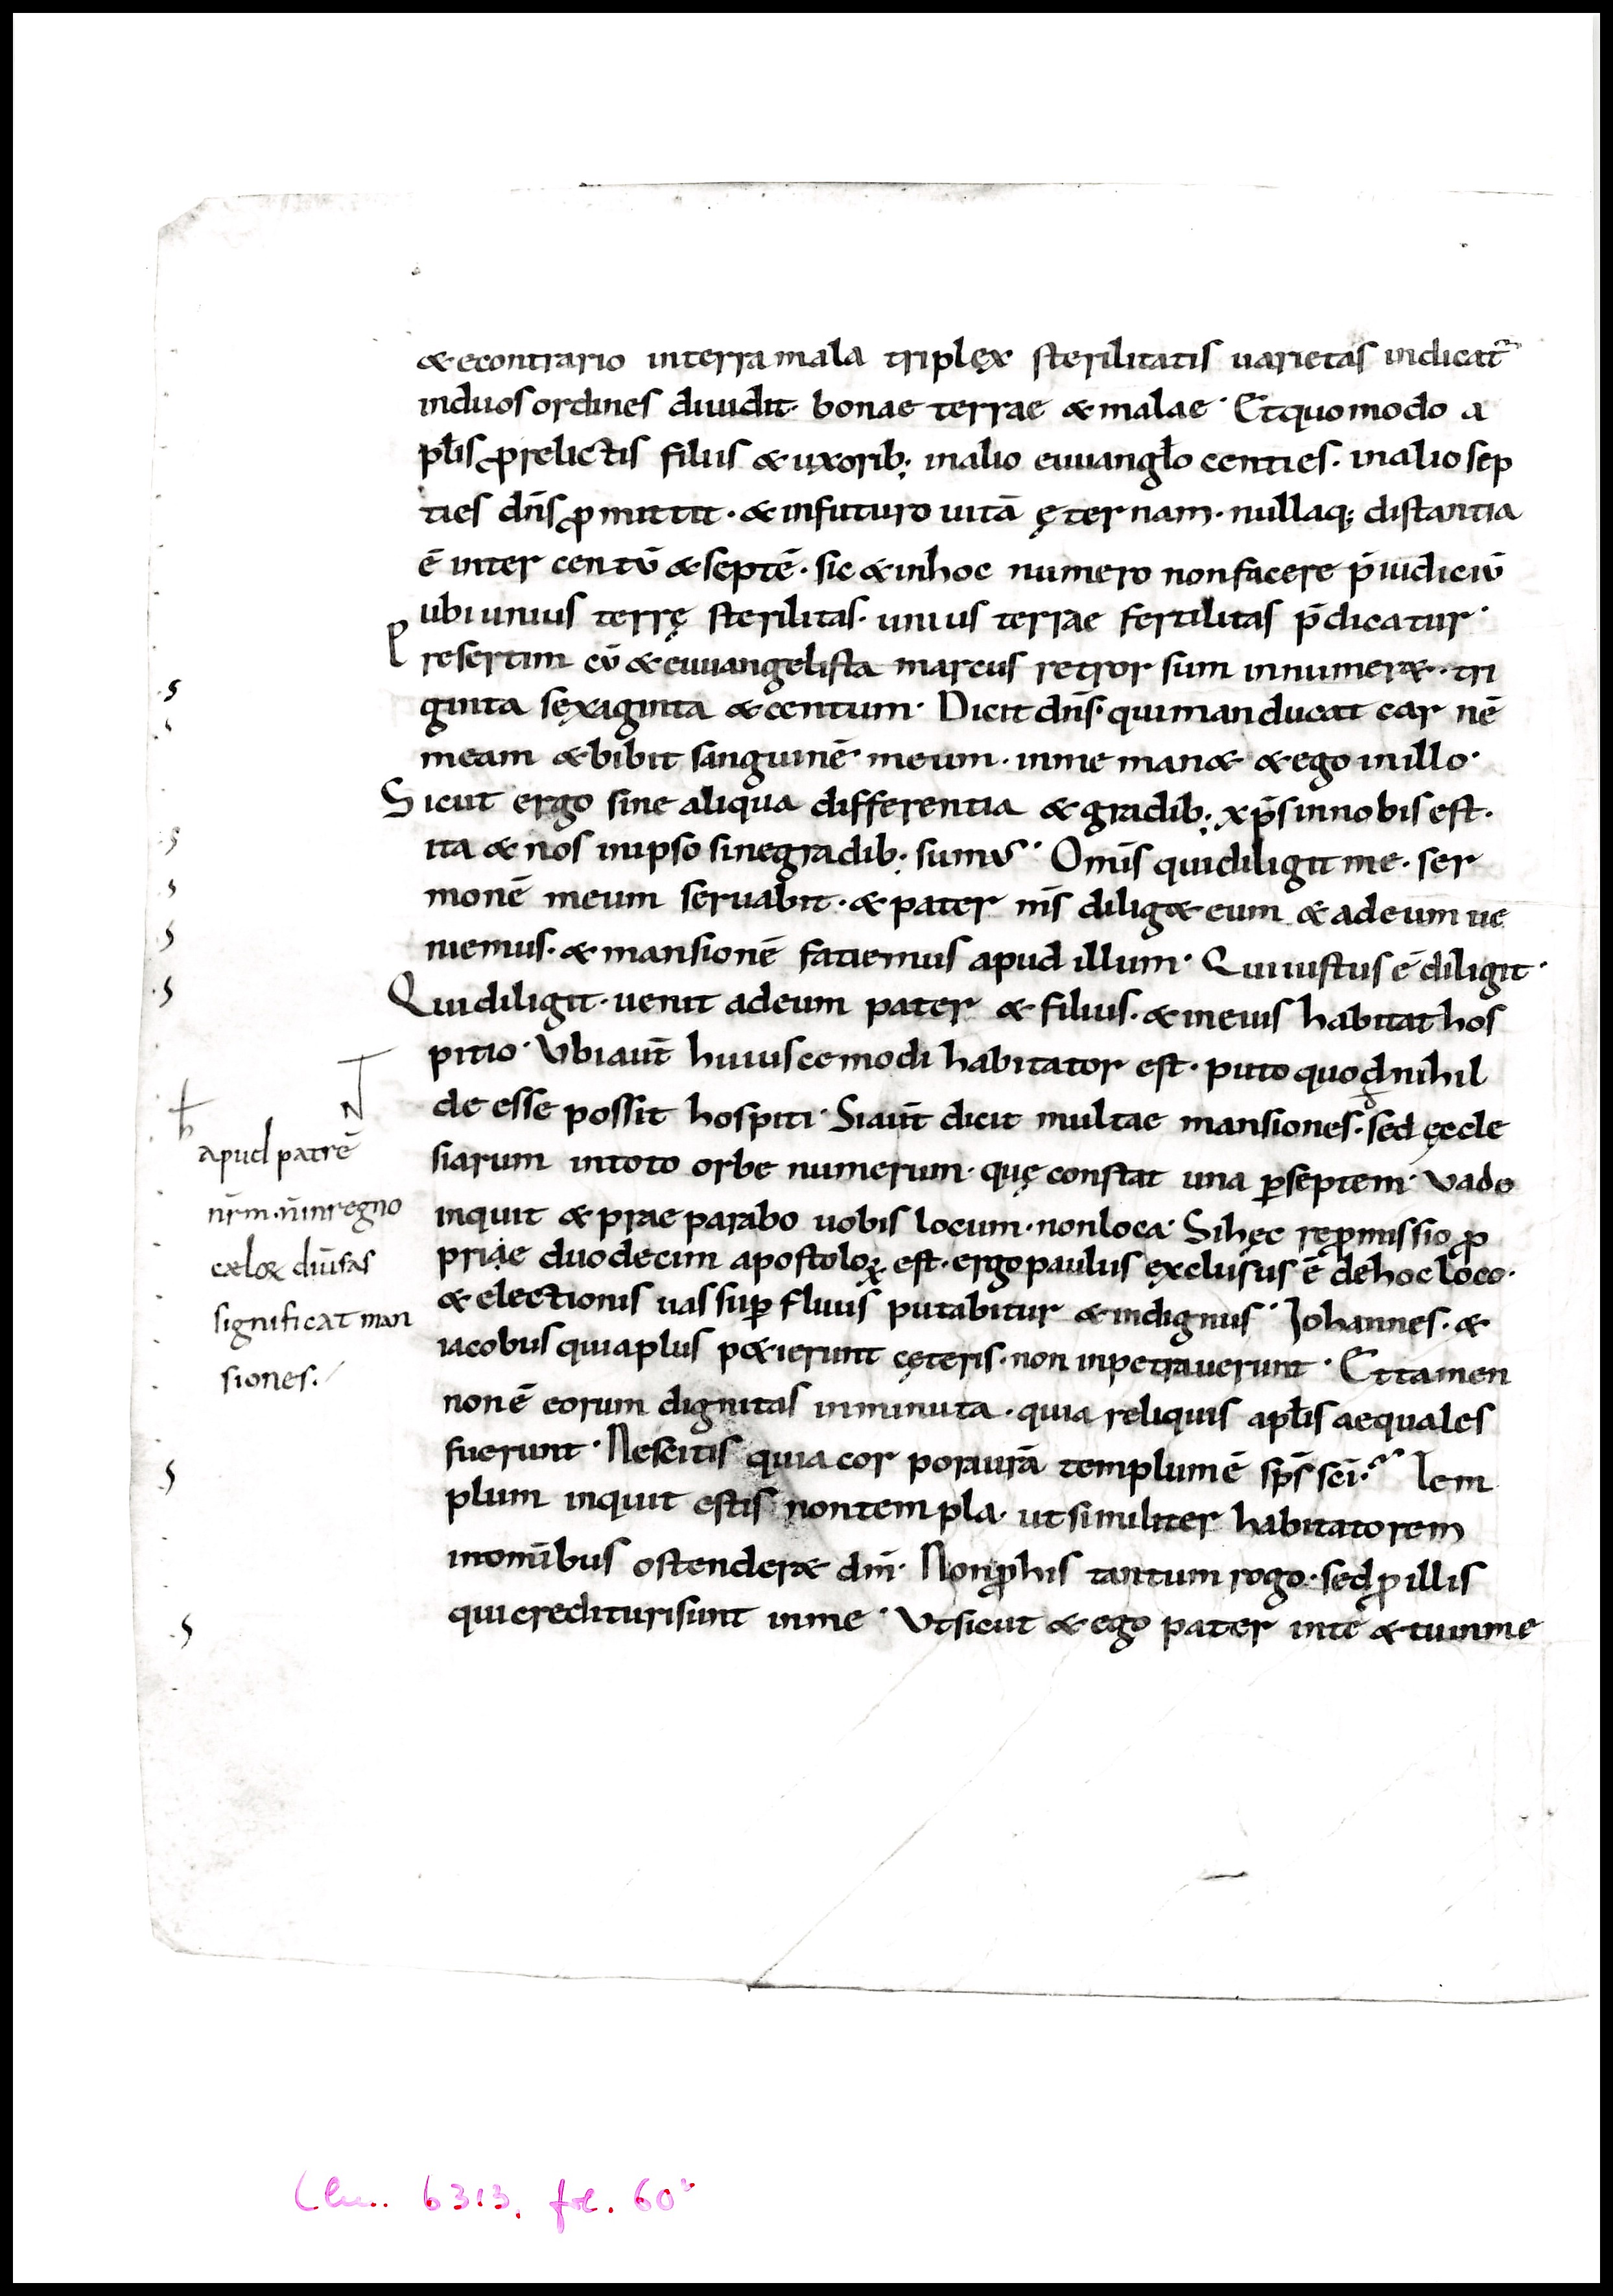 & econtrario interra mala triplex sterilitatis uarietas indicat᷑
induos ordines diuidit· bonae terrae & malae· Et quomodo a
pƚis ꝓrelictis filiis & uxorib; inalio euuangƚo centies· inalio sep
ties dn̄s ꝓmittit· & infuturo uitā ęternam· nullaq; distantia
ē inter centū & septē· sic & inhoc numero nonfacere p̄iudiciū
ubi unius terrę sterilitas· unius terrae fertilitas p̄dicatur·
Presertim cū & euuangelista marcus retrorsum innumer&· tri
ginta sexaginta & centum· Dicit dn̄s· qui manducat carnē
meam & bibit sanguinē meum· inme man& & ego inillo·
Sicut ergo sine aliqua differentia & gradib; xp̄s innobis est·
ita & nos inipso sinegradib; sumꝰ· Om̄s quidiligit me· ser
monē meum seruabit· & pater m̄s dilig& eum & adeum ue
niemus· & mansionē faciemus apud illum· Qui iustus ē diligit·
Quidiligit· uenit adeum pater & filius· & ineius habitat hos
pitio· Vbi aut̄ huiuscemodi habitator est· puto quod nihil
deesse possit hospiti· Siaut̄ dicit multae mansiones· sed ęccle
siarum intoto orbe numerum· quę constat una ꝑseptem· Vado
inquit & praeparabo uobis locum· nonloca· Sihęc reꝓmissio ꝓ
priae duodecim apostoloꝝ est· ergo paulus exclusus ē dehoc loco·
& electionis uas suꝑfluus putabitur & indignus· Iohannes· &
iacobus quiaplus p&ierunt cęteris· non inpetrauerunt· Et tamen
non ē eorum dignitas inminuta· quia reliquis apƚis aequales
fuerunt· Nescitis quia corpora ur̄a templum ē sp̄s sc̄i· Tem
plum inquit estis non templa· ut similiter habitatorem
inomībus ostender& dm̄· Non ꝓhis tantum rogo· sed ꝓ illis
qui credituri sunt inme· Vt sicut & ego pater inte & tu inme
apud patrē
nr̄m· n̄ inregno
caeloꝝ diuersas
significat man
siones·
Clm. 6313. fol. 60ʳ